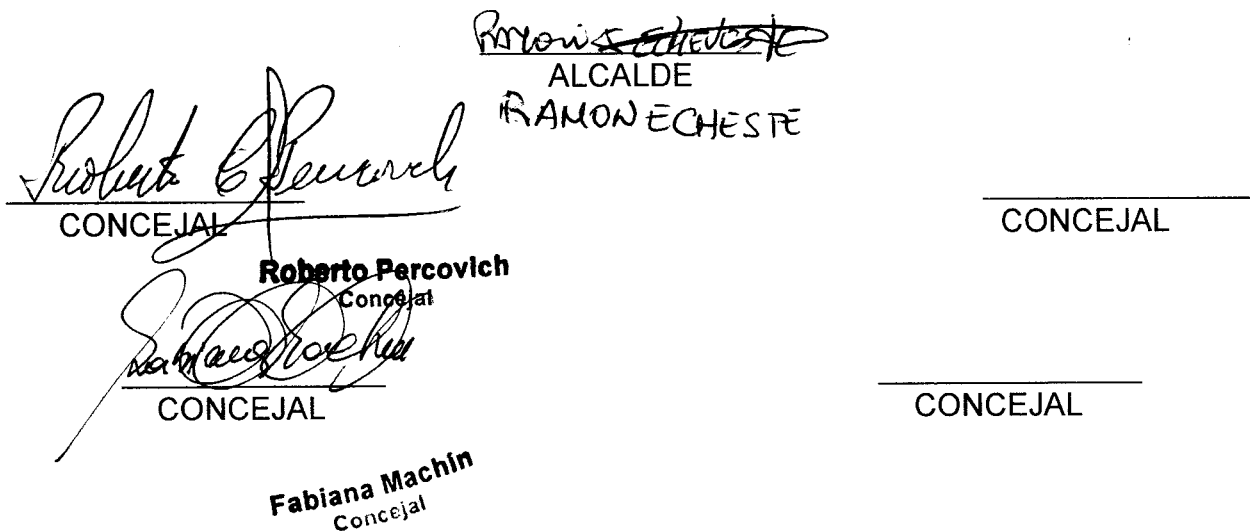 RAMON ECHEVESTE
ALCALDE
RAMON ECHESTE
Roberto C Percovich
CONCEJAL
CONCEJAL
Roberto Percovich
Concejal
Fabiana Machin
CONCEJAL
CONCEJAL
Fabiana Machín
Concejal